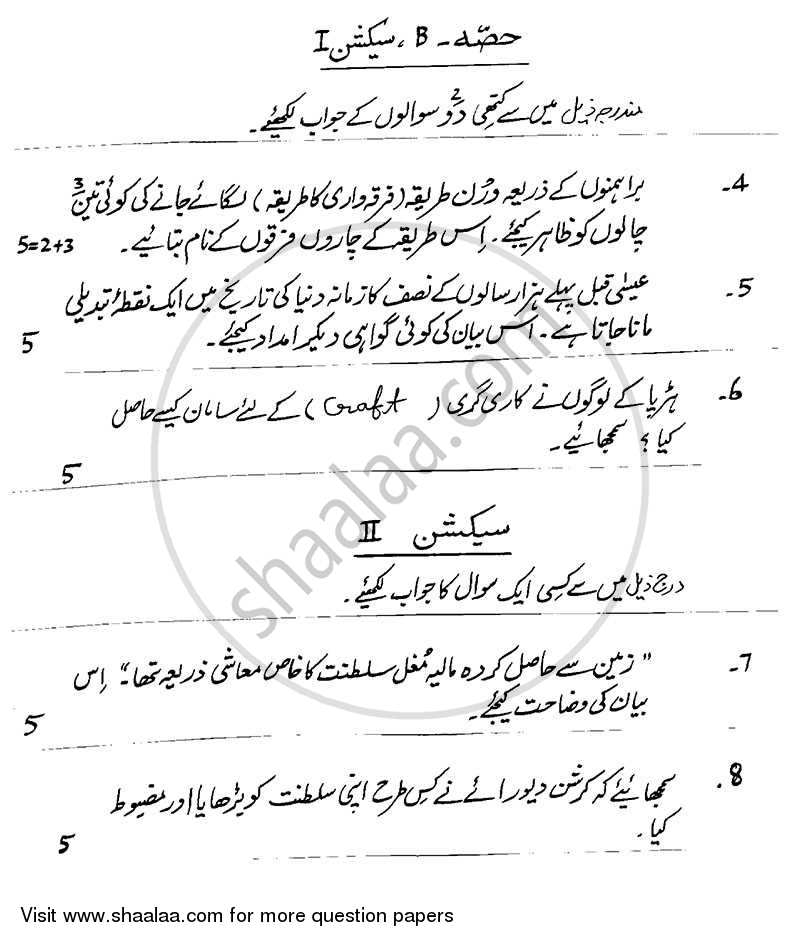 حصّہ - B ، سیکشن I
مندرجہ ذیل میں سے کتھی دو 2 سوالوں کے جواب لکھئے۔
4۔ براہمنوں کے ذریعہ ورْن طریقہ (فرقہ واری کا طریقہ) لگائے جانے کی کوئی تین 3
چالوں کو ظاہر کیجئے۔ اِس طریقہ کے چاروں فرقوں کے نام بتائیے۔ 5=2+3
5۔ عیسٰی قبل پہلے ہزار سالوں کے نصف کا زمانہ دنیا کی تاریخ میں ایک نقطۂ تبدیلی
مانا جاتا ہے۔ اس بیان کی کوئی گواہی دیکر امداد کیجئے۔ 5
6۔ ہڑپا کے لوگوں نے کاری گری (Craft) کے لئے سامان کیسے حاصل
کیا؟ سمجھائیے۔ 5
سیکشن II
درج ذیل میں سے کسی ایک سوال کا جواب لکھئیے۔
7۔ "زمین سے حاصل کردہ مالیہ مُغل سلطنت کا خاص معاشی ذریعہ تھا۔" اِس
بیان کی وضاحت کیجئے۔ 5
8۔ سمجھائیئے کہ کرشن دیورائے نے کِس طرح اپنی سلطنت کو بڑھایا اور مضبوط
کیا۔ 5
shaalaa.com
Visit www.shaalaa.com for more question papers